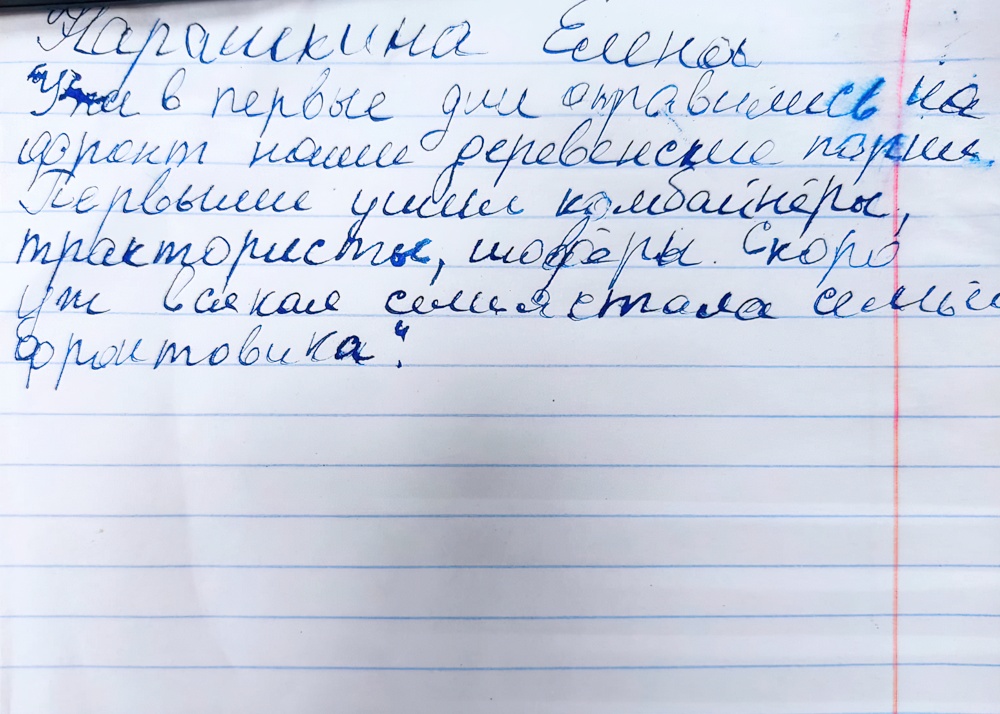 Карашкина Елена
"Уже в первые дни отправились на
фронт наши деревенские парни.
Первыми ушли комбайнёры,
трактористы, шофёры. Скоро
уж всякая семья стала семьёй
фронтовика".